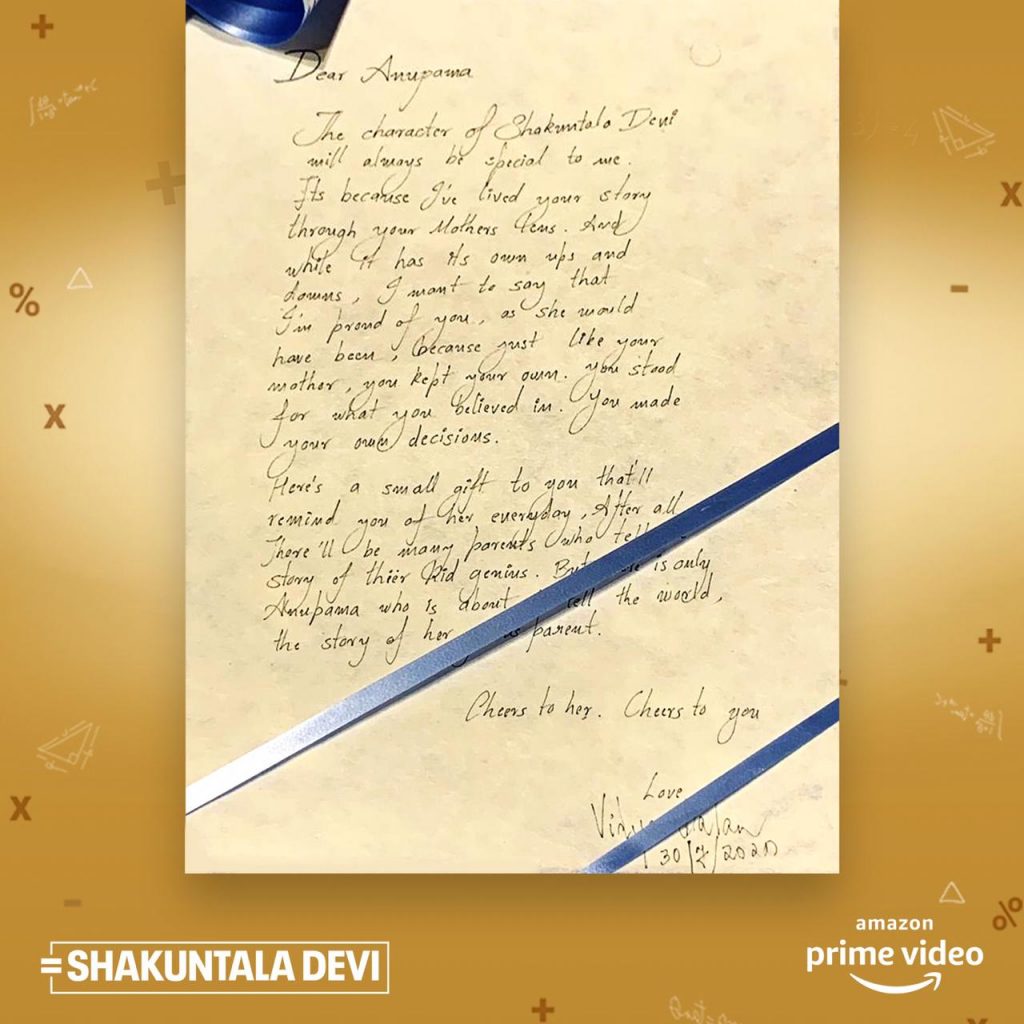 Dear Anupama
The character of Shakuntala Devi
will always be special to me.
Its because I've lived your story
through your Mothers lens. And
while it has its own ups and
downs, I want to say that
I'm proud of you, as she would
have been, because just like your
mother, you kept your own. you stood
for what you believed in. You made
your own decisions.
Here's a small gift to you that'll
remind you of her everyday, After all
There'll be many parents who tell
story of thier kid genius. But is only
Anupama who is about tell the world,
the story of her parent.
Cheers to her. Cheers to you
Love
30/7/2020
=SHAKUNTALA DEVI
amazon
prime video